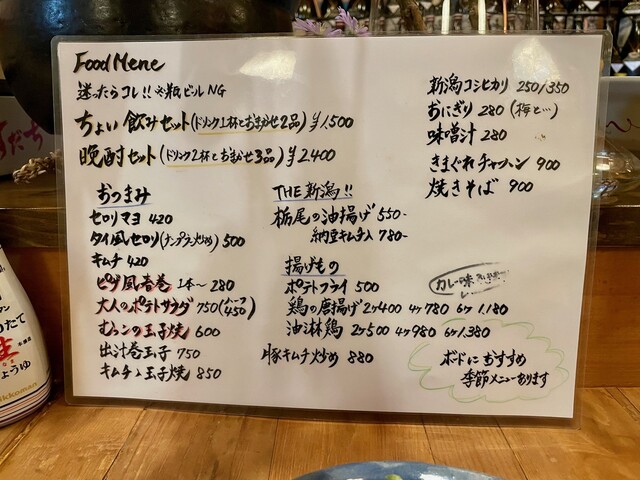 Food Mene
迷ったらコレ!! ※瓶ビールNG
ちょい飲みセット(ドリンク1杯とおまかせ2品) ¥1,500
晩酌セット(ドリンク2杯とおまかせ3品) ¥2,400
おつまみ
セロリマヨ 420
タイ風セロリ(ナンプラー炒め) 500
キムチ 420
ピザ風春巻 1本〜 280
大人のポテトサラダ 750(ハーフ450)
むっつの玉子焼 600
出汁巻玉子 750
キムチ入玉子焼 850
THE 新潟!!
栃尾の油揚げ 550-
納豆キムチ入 780-
揚げもの
ポテトフライ 500
鶏の唐揚げ 2ヶ400 4ヶ780 6ヶ1,180
油淋鶏 2ヶ500 4ヶ980 6ヶ1,380
豚キムチ炒め 880
新潟コシヒカリ 250/350
おにぎり 280 (梅と…)
味噌汁 280
きまぐれチャーハン 900
焼きそば 900
カレー味
ボードにおすすめ
季節メニューあります
たて
生
しょうゆ
kkoman